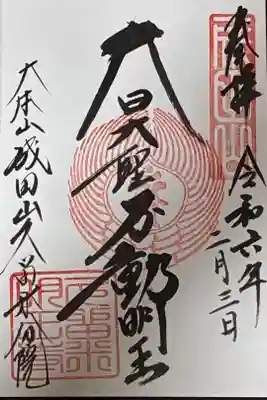 奉拝
令和六年
二月三日
大日大聖不動明王
大本山成田山久留米分院